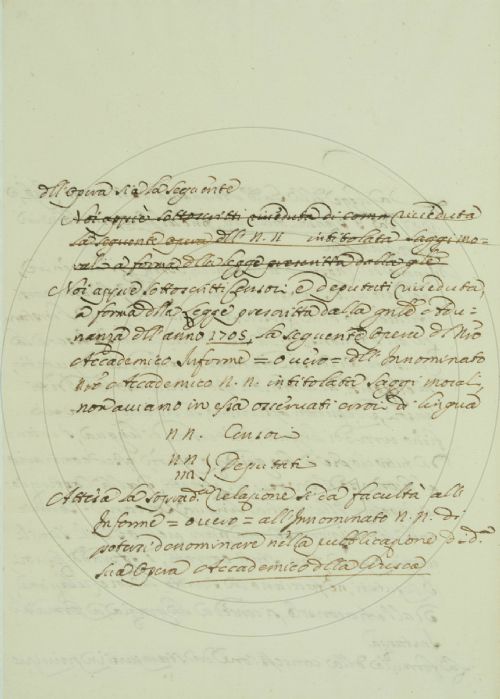 dell'Opera sia la seguente
Noi appiè sottoscritti riveduta di comm riveduta
la seguente opera dell N. N. intitolata Saggi mo=
rali a forma della legge prescritta dalla gñle
Noi appiè sottoscritti Censori, e deputati riveduta,
a forma dlla Legge prescritta dalla gñle Adu=
nanza dell'anno 1705, la seguente Opera di Nro
Accademico Informe = o vero = dell'Innominato
Nro Accademico N. N. intitolata Saggi morali,
non aviamo in essa osservati errori di lingua
N N. Censori
N N
N N } Deputati
Attesa la soprad.ta relazione si dà facultà all
Informe = o vero = all'Innominato N. N. di
potersi denominare nella pubblicazione di d.a
sua Opera Accademico della Crusca